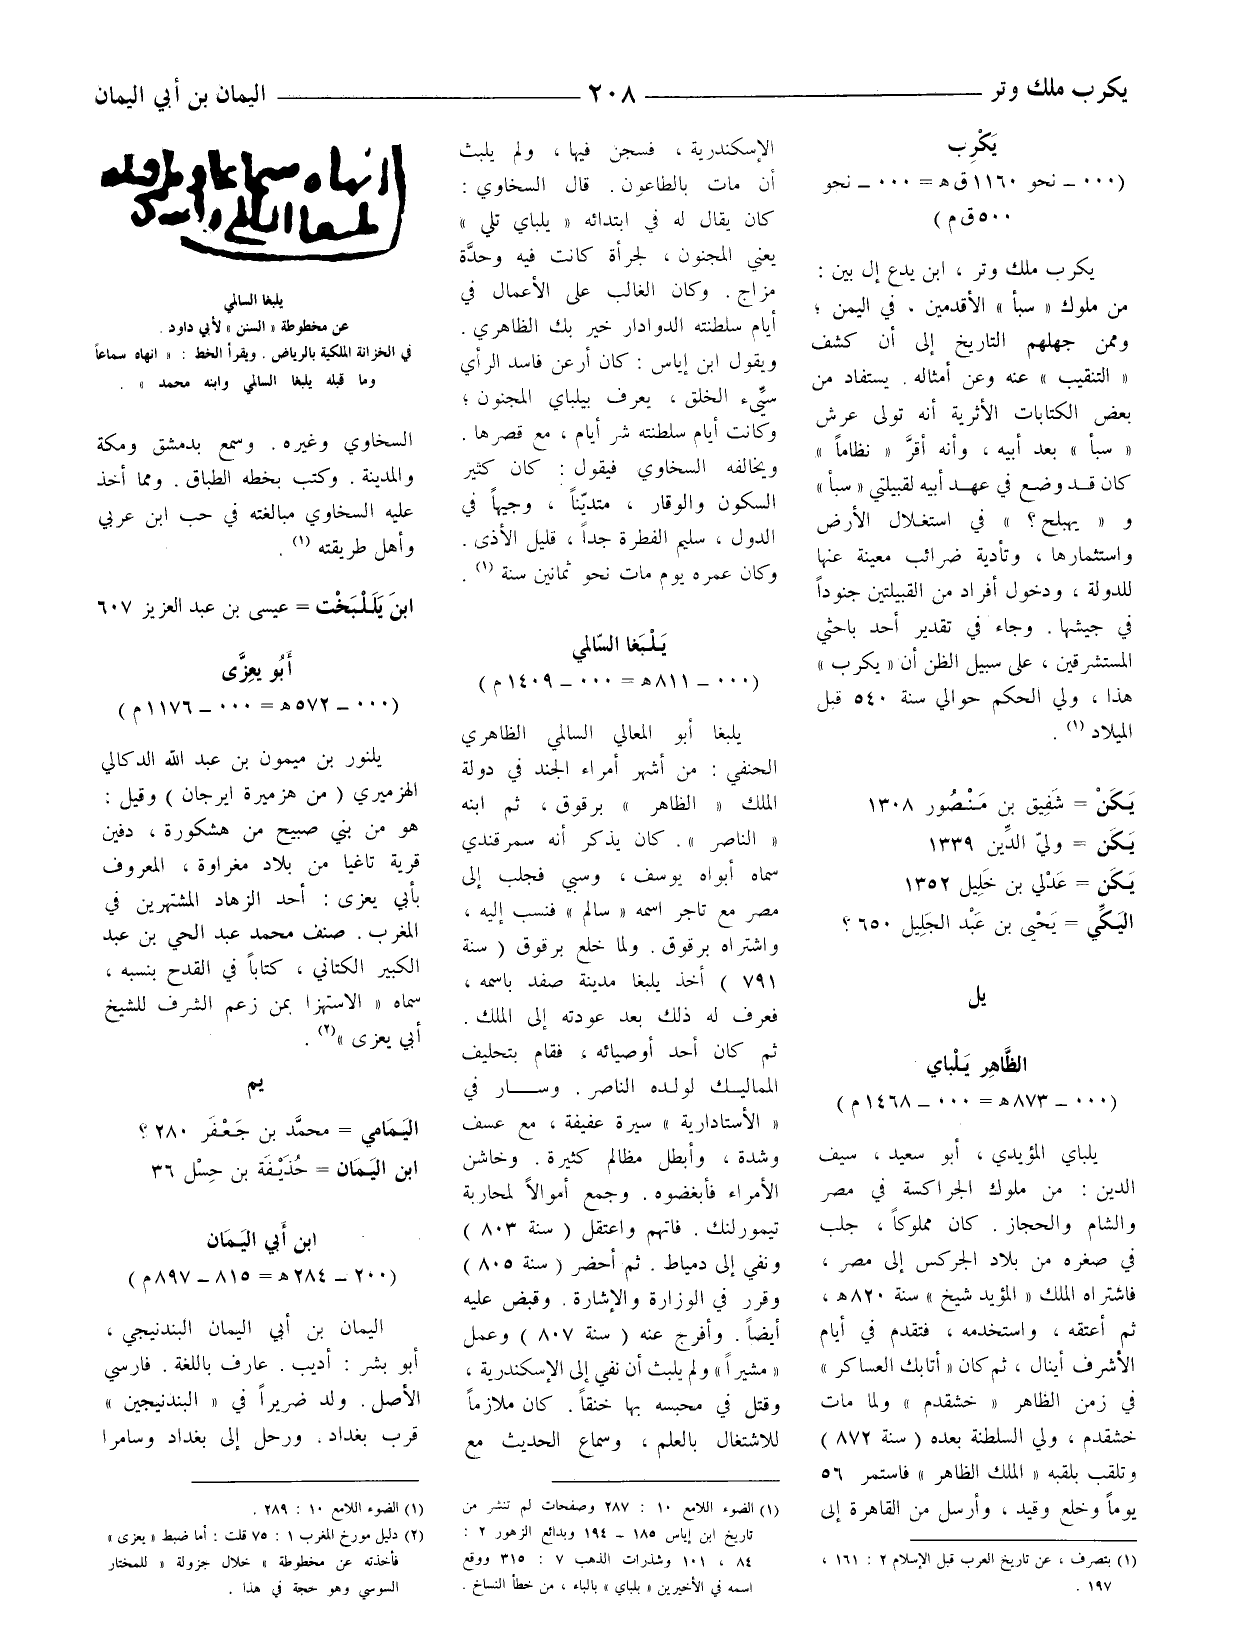 يكرب ملك وتر ــ ٢٠٨ ــ اليمان بن أبي اليمان
يَكْرِب
(٠٠٠ ــ نحو ١١٦٠ق ه = ٠٠٠ ــ نحو
٥٠٠ق م)
يكرب ملك وتر ، ابن يدع إل بين :
من ملوك « سبأ » الأقدمين ، في اليمن ؛
وممن جهلهم التاريخ إلى أن كشف
« التنقيب » عنه وعن أمثاله . يستفاد من
بعض الكتابات الأثرية أنه تولى عرش
« سبأ » بعد أبيه ، وأنه أقرَّ « نظاماً »
كان قد وضع في عهد أبيه لقبيلتي « سبأ »
و « يهبلح؟ » في استغلال الأرض
واستثمارها ، وتأدية ضرائب معينة عنها
للدولة ، ودخول أفراد من القبيلتين جنوداً
في جيشها . وجاء في تقدير أحد باحثي
المستشرقين ، على سبيل الظن أن « يكرب »
هذا ، ولي الحكم حوالي سنة ٥٤٠ قبل
الميلاد (١) .
يَكَنْ = شَفِيق بن مَنْصُور ١٣٠٨
يَكَن = وليّ الدِّين ١٣٣٩
يَكَن = عَدْلي بن خَلِيل ١٣٥٢
اليَكِّي = يَحْيى بن عَبْد الجَلِيل ٦٥٠ ؟
يل
الظَّاهِر يَلْباي
(٠٠٠ ــ ٨٧٣ه = ٠٠٠ ــ ١٤٦٨م)
يلباي المؤيدي ، أبو سعيد ، سيف
الدين : من ملوك الجراكسة في مصر
والشام والحجاز . كان مملوكاً ، جلب
في صغره من بلاد الجركس إلى مصر ،
فاشتراه الملك « المؤيد شيخ » سنة ٨٢٠ه ،
ثم أعتقه ، واستخدمه ، فتقدم في أيام
الأشرف أينال ، ثم كان « أتابك العساكر »
في زمن الظاهر « خشقدم » ولما مات
خشقدم ، ولي السلطنة بعده ( سنة ٨٧٢ )
وتلقب بلقبه « الملك الظاهر » فاستمر ٥٦
يوماً وخلع وقيد ، وأرسل من القاهرة إلى
(١) بتصرف ، عن تاريخ العرب قبل الإسلام ٢ : ١٦١ ،
١٩٧ .
الإسكندرية ، فسجن فيها ، ولم يلبث
أن مات بالطاعون . قال السخاوي :
كان يقال له في ابتدائه « يلباي تلي »
يعني المجنون ، لجرأة كانت فيه وحدَّة
مزاج . وكان الغالب على الأعمال في
أيام سلطنته الدوادار خير بك الظاهري .
ويقول ابن إياس : كان أرعن فاسد الرأي
سيِّىء الخلق ، يعرف بيلباي المجنون ؛
وكانت أيام سلطنته شر أيام ، مع قصرها .
ويخالفه السخاوي فيقول : كان كثير
السكون والوقار ، متديّناً ، وجيهاً في
الدول ، سليم الفطرة جداً ، قليل الأذى .
وكان عمره يوم مات نحو ثمانين سنة (١) .
يَلْبَغا السّالمي
(٠٠٠ ــ ٨١١ه = ٠٠٠ ــ ١٤٠٩م)
يلبغا أبو المعالي السالمي الظاهري
الحنفي : من أشهر أمراء الجند في دولة
الملك « الظاهر » برقوق ، ثم ابنه
« الناصر » . كان يذكر أنه سمرقندي
سماه أبواه يوسف ، وسبي فجلب إلى
مصر مع تاجر اسمه « سالم » فنسب إليه ،
واشتراه برقوق . ولما خلع برقوق ( سنة
٧٩١ ) أخذ يلبغا مدينة صفد باسمه ،
فعرف له ذلك بعد عودته إلى الملك .
ثم كان أحد أوصيائه ، فقام بتحليف
المماليك لولده الناصر . وسار في
« الأستادارية » سيرة عفيفة ، مع عسف
وشدة ، وأبطل مظالم كثيرة . وخاشن
الأمراء فأبغضوه . وجمع أموالاً لمحاربة
تيمورلنك . فاتهم واعتقل ( سنة ٨٠٣ )
ونفي إلى دمياط . ثم أحضر ( سنة ٨٠٥ )
وقرر في الوزارة والإشارة . وقبض عليه
أيضاً . وأفرج عنه ( سنة ٨٠٧ ) وعمل
« مشيراً » ولم يلبث أن نفي إلى الإسكندرية ،
وقتل في محبسه بها خنقاً . كان ملازماً
للاشتغال بالعلم ، وسماع الحديث مع
(١) الضوء اللامع ١٠ : ٢٨٧ وصفحات لم تنشر من
تاريخ ابن إياس ١٨٥ ــ ١٩٤ وبدائع الزهور ٢ :
٨٤ ، ١٠١ وشذرات الذهب ٧ : ٣١٥ ووقع
اسمه في الأخيرين « بلباي » بالباء ، من خطأ النساخ .
انهاه سماعا وما قبله
يلبغا السالمي وابنه محمد
يلبغا السالمي
عن مخطوطة « السنن » لأبي داود .
في الخزانة الملكية بالرياض . ويقرأ الخط : « انهاه سماعاً
وما قبله يلبغا السالمي وابنه محمد » .
السخاوي وغيره . وسمع بدمشق ومكة
والمدينة . وكتب بخطه الطباق . ومما أخذ
عليه السخاوي مبالغته في حب ابن عربي
وأهل طريقته (١) .
ابن يَلَلْبَخْت = عيسى بن عبد العزيز ٦٠٧
أَبُو يعِزَّى
(٠٠٠ ــ ٥٧٢ه = ٠٠٠ ــ ١١٧٦م)
يلنور بن ميمون بن عبد الله الدكالي
الهزميري ( من هزميرة ايرجان ) وقيل :
هو من بني صبيح من هشكورة ، دفين
قرية تاغيا من بلاد مغراوة ، المعروف
بأبي يعزى : أحد الزهاد المشتهرين في
المغرب . صنف محمد عبد الحي بن عبد
الكبير الكتاني ، كتاباً في القدح بنسبه ،
سماه « الاستهزا بمن زعم الشرف للشيخ
أبي يعزى »(٢) .
يم
اليَمَامي = محمَّد بن جَعْفَر ٢٨٠ ؟
ابن اليَمَان = حُذَيْفَة بن حِسْل ٣٦
ابن أَبي اليَمَان
(٢٠٠ ــ ٢٨٤ه = ٨١٥ ــ ٨٩٧م)
اليمان بن أبي اليمان البندنيجي ،
أبو بشر : أديب . عارف باللغة . فارسي
الأصل . ولد ضريراً في « البندنيجين »
قرب بغداد . ورحل إلى بغداد وسامرا
(١) الضوء اللامع ١٠ : ٢٨٩ .
(٢) دليل مورخ المغرب ١ : ٧٥ قلت : أما ضبط « يعزى »
فأخذته عن مخطوطة « خلال جزولة » للمختار
السوسي وهو حجة في هذا .